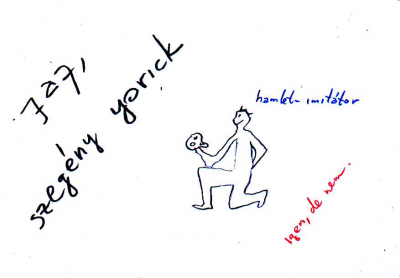 jaj,
szegény yorick
hamlet-imitátor
igen, de nem.